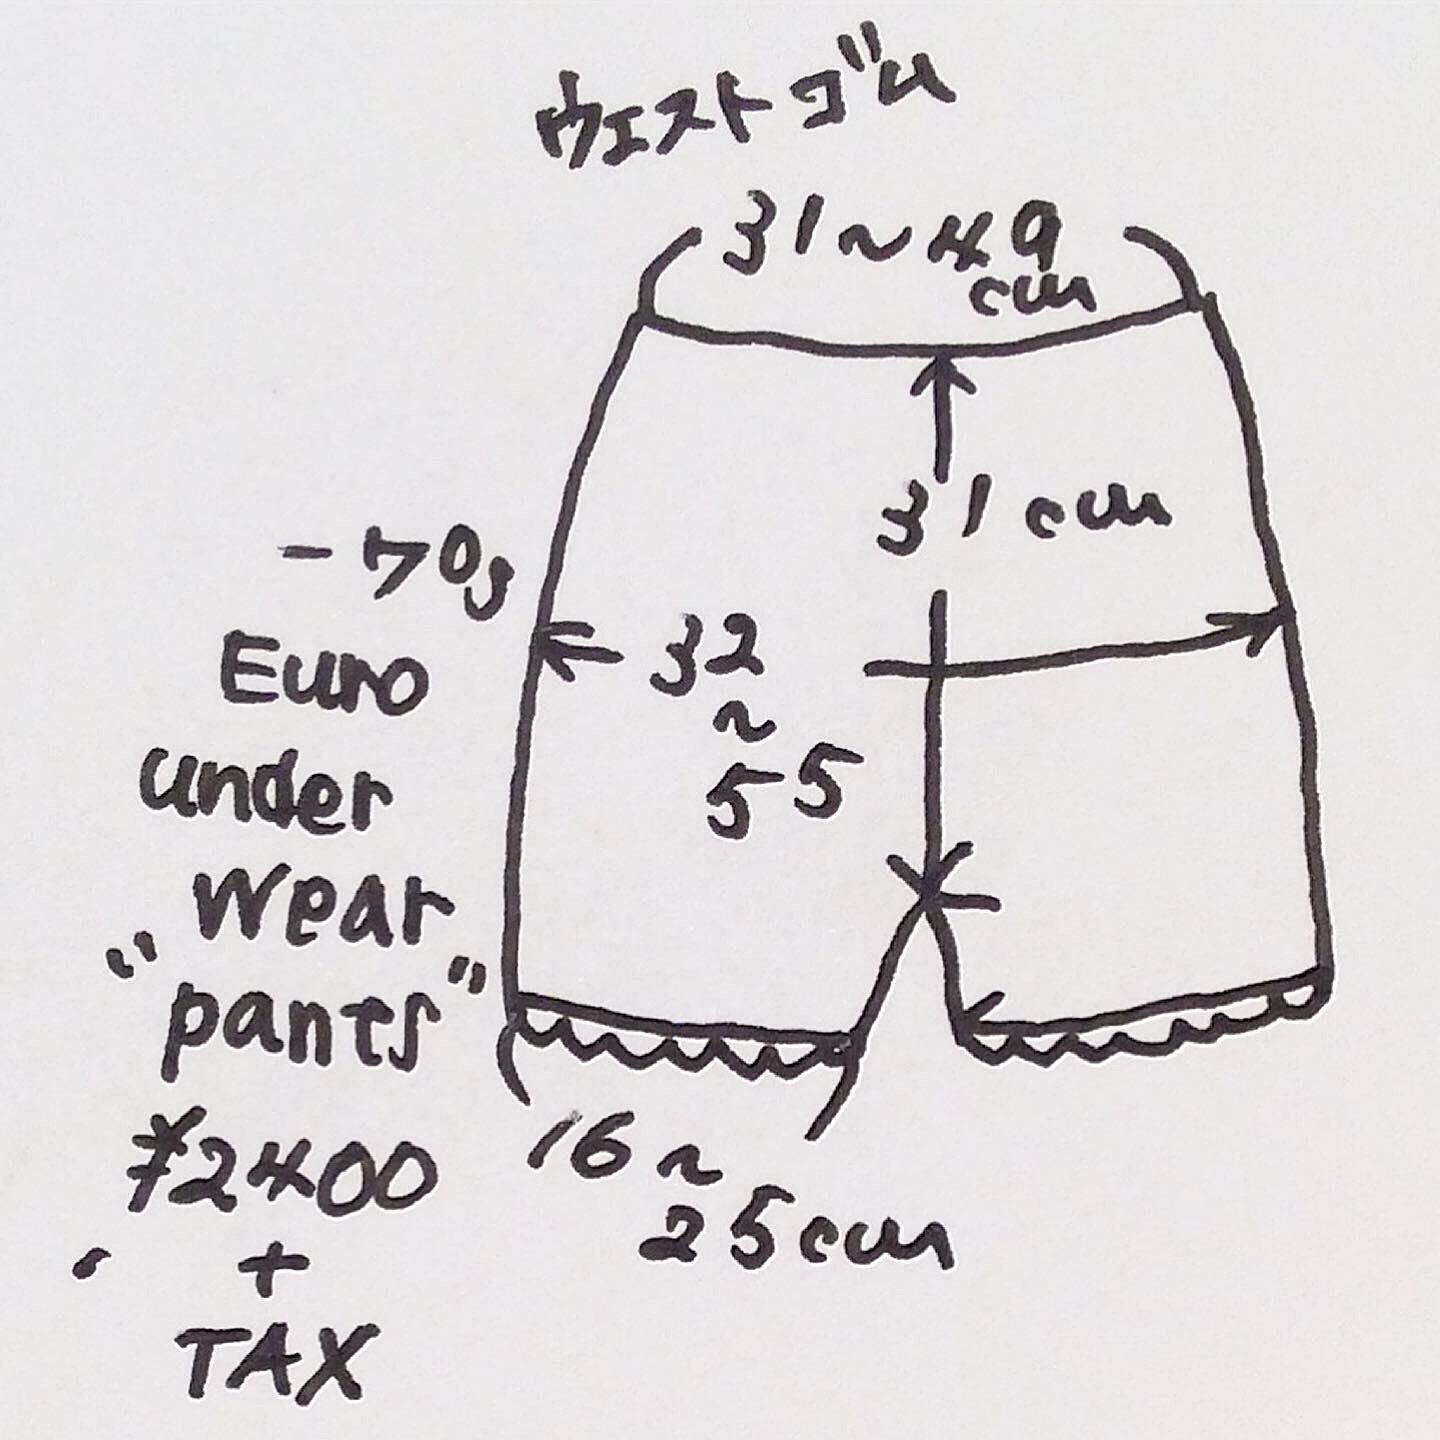 ウエストゴム
31~49
cm
31cm
-70s
Euro
under
wear
"pants"
¥2400
+
TAX
32
~
55
16~
25cm